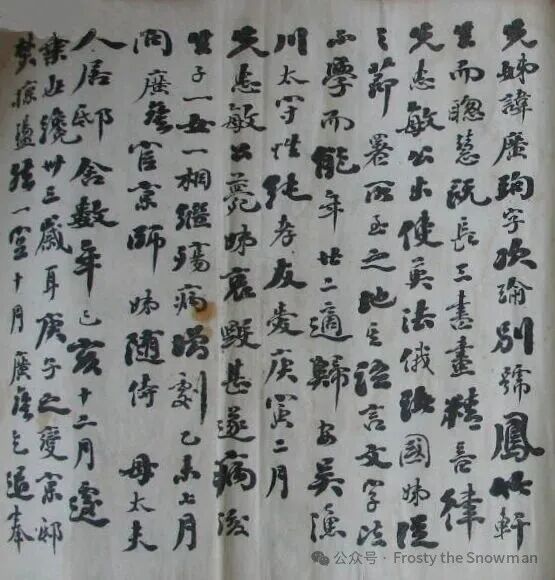 先姊諱廣珣字次瑜別號鳳軒
生而聰慧既長工書畫精音律
先惠敏公出使英法俄諸國姊從
之節署所至之地其語言文字
不學而能年廿二適歸安吳漁
川太守性純孝友愛庚寅二月
先惠敏公薨姊哀毀甚遂病後
生子一女一相繼殤病增劇乙未七月
同廣銓官京師姊隨侍 母太夫
人居邸舍數年己亥十二月遽
棄世纔卅三歲耳庚子之變京邸
焚掠盡一十月廣銓乞奉
公众号 · Frosty the Snowman